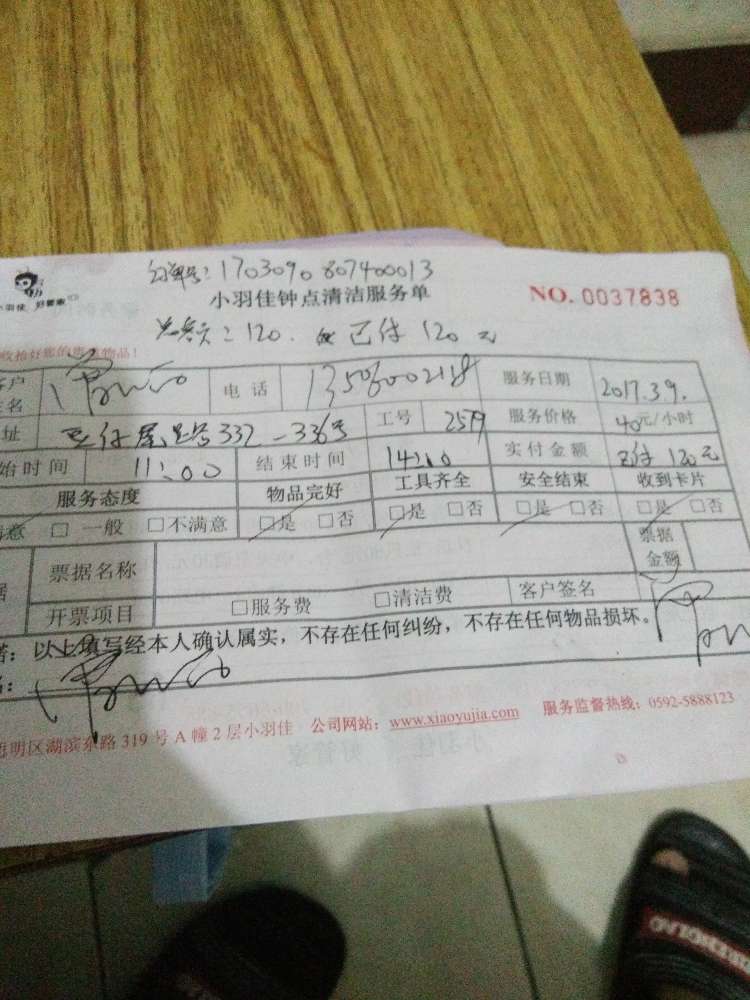 订单号：1703090807400013
小羽佳 好管家
小羽佳钟点清洁服务单 NO. 0037838
总类：120. 已付120元
收拾好您的贵重物品！
电话 服务日期 2017.3.9.
址 332-336号 工号 2579 服务价格 40元/小时
始时间 11:00 结束时间 14:00 实付金额 已付120元
服务态度 物品完好 工具齐全 安全结束 收到卡片
意 □一般 □不满意 □是 □否 □是 □否 □是 □否 □是 □否
票据名称 票据金额
开票项目 □服务费 □清洁费 客户签名
：以上填写经本人确认属实，不存在任何纠纷，不存在任何物品损坏。
思明区湖滨东路319号A幢2层小羽佳 公司网站：www.xiaoyujia.com 服务监督热线：0592-5888123